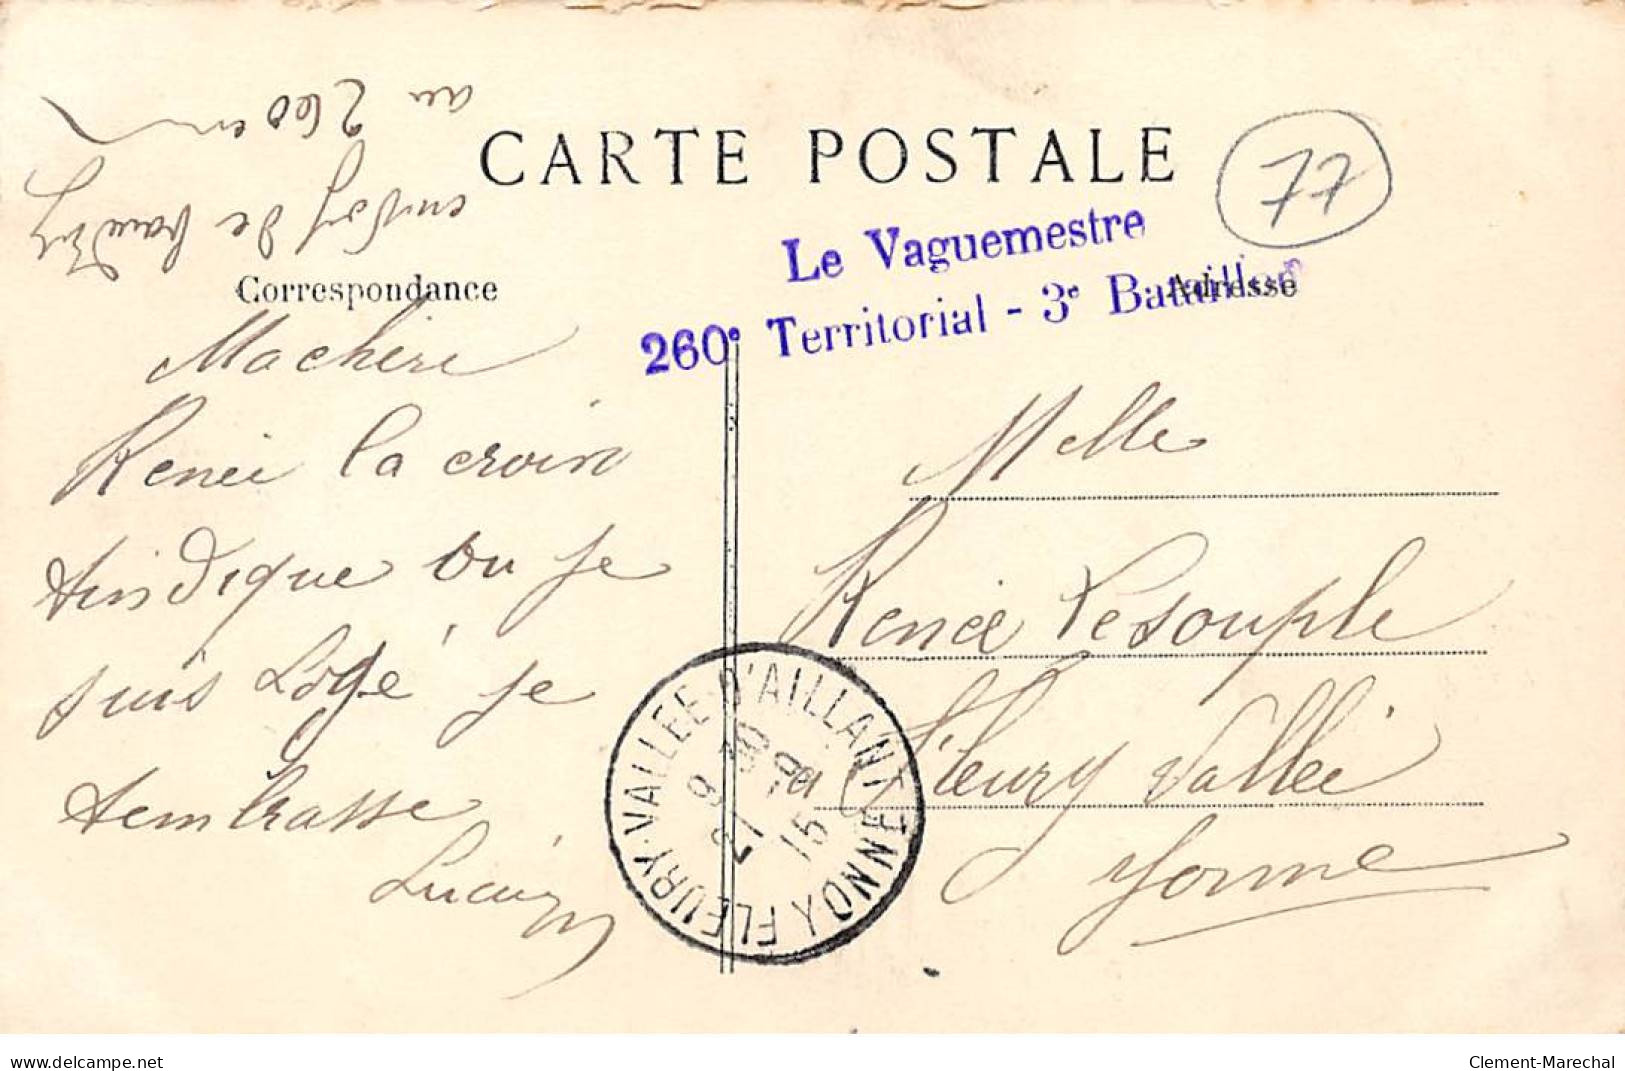 CARTE POSTALE
77
Le Vaguemestre
260e Territorial - 3e Bataillon
Correspondance
Adresse
envoy de
au 260 en
Ma chère
Renée la croix
tindique ou je
suis Logé je
tembrasse
Lucien
Melle
Renée Lesouple
a Fleury Vallée
Yonne
FLEURY-VALLEE-D'AILLANT YONNE
8 30
27 -9
15
delcampe.net
Clement-Marechal